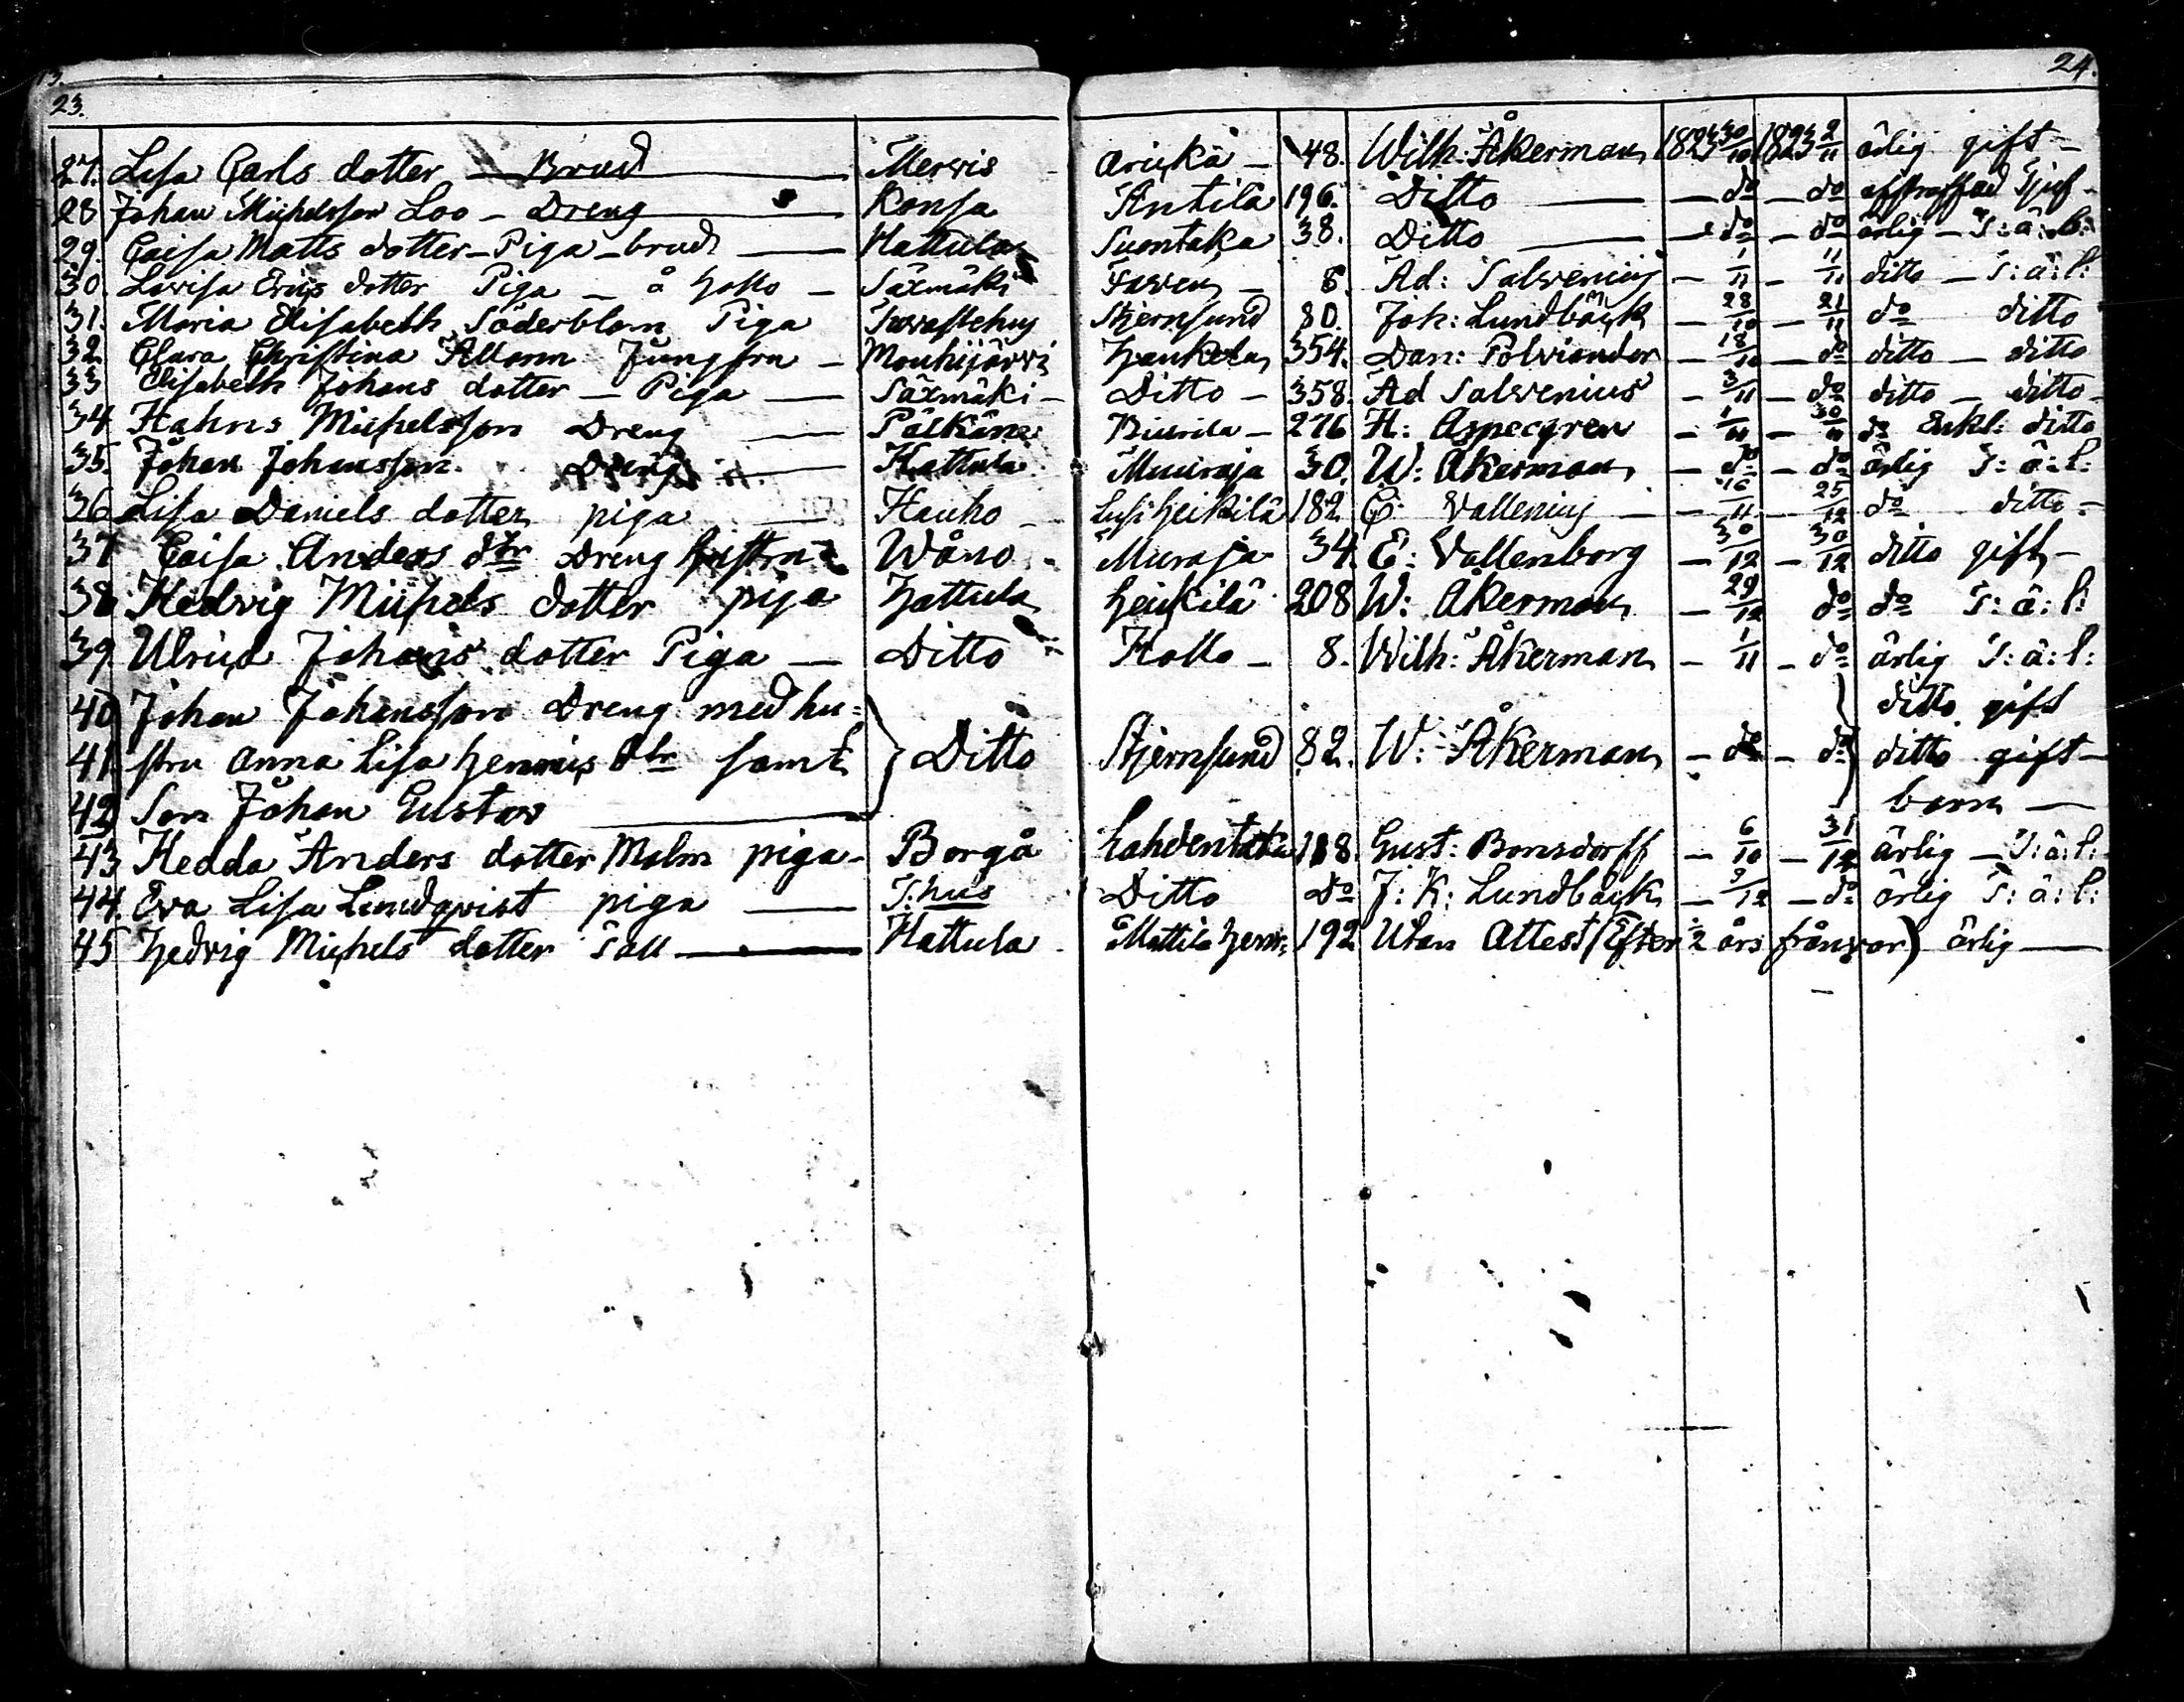 23.
24.
27. Lisa Carls dotter — Brud — Mervis - arickä — 48. Wilh: Åkerman 1823 30/10 1823 2/11 ärlig gift —
28 Johan Michelsson Loo — Dreng — Konsa Antila 196. Ditto — — do — do afstraffad Tjuf —
29. Caisa Matts dotter — Piga — brud — Hattula Suontaka 38. Ditto — — do — do ärlig — T: ä: l:
30. Lovisa Erics dotter Piga — å Hollo — Säxmäki 8. Ad: Salvenius — 1/11 — 11/11 ditto — T: ä: l:
31. Maria Elisabeth Söderblom Piga Tavastehus Stjernsund 80. Joh: Lundbäck — 28/10 — 21/11 do ditto
32 Clara Christina Allorin Jungfru — Mouhijärvi 354. Dan: Polviander — 18/10 — do ditto — ditto
33 Elisabeth Johans dotter — Piga — Säxmäki — Ditto — 358. Ad Salvenius — 3/11 — do ditto — ditto —
34 Hahns Michelsson Dreng — Pälkäne 276 H: Aspegren — 1/11 — 30/11 do Enkl: ditto
35. Johan Johansson Dreng — Hattula Muuraja 30. W: Åkerman — do — do ärlig T: ä: l:
36 Lisa Daniels dotter piga — Hauho — Lusi heikilä 182 C: Vallenius — 16/11 — 25/12 do ditto —
37 Caisa Anders dtr Dreng hustru Wåno — Muraja 34. E: Vallenborg — 30/12 — 30/12 ditto gift —
38 Hedvig Michels dotter piga Hattula Heickilä 208 W: Åkerman — 29/12 do do T: ä: l:
39 Ulrica Johans dotter Piga — Ditto Hollo — 8. Wilh: Åkerman — 1/11 — do ärlig T: ä: l:
40 Johan Johansson Dreng med hu= ditto gift
41 stru Anna Lisa Henrics dtr samt } Ditto Stjernsund 82. W: Åkerman — do — do ditto gift —
42 Son Johan Gustav — barn —
43 Hedda Anders dotter Malm piga — Borgå Lahdentaka 188 Gust: Bonsdorff — 6/10 — 31/12 ärlig — T: ä: l:
44. Eva Lisa Lundqvist piga — T:hus Ditto do J: K: Lundbäck — 9/12 — do ärlig T: ä: l:
45 Hedvig Michels dotter Tall — Hattula Mattila Henr: 192 Utan Attest (Efter 1/2 års frånvar) ärlig —